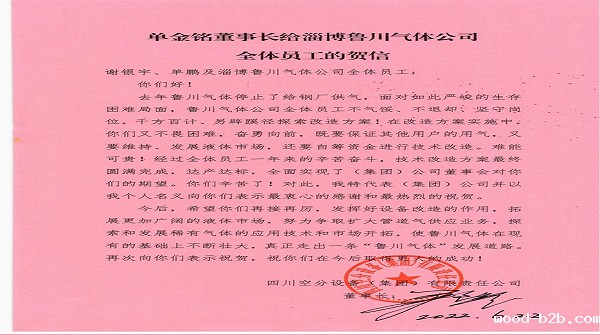 单金铭董事长给淄博鲁川气体公司
全体员工的贺信
谢银宇、单鹏及淄博鲁川气体公司全体员工：
你们好！
去年鲁川气体停止了给钢厂供气，面对如此严峻的生存
困难局面，鲁川气体公司全体员工不气馁、不退却、坚守岗
位，千方百计、另辟蹊径探索改造方案！在改造方案实施中，
你们又不畏困难，奋勇向前，既要保证其他用户的用气，又
要维持、发展液体市场，还要自筹资金进行技术改造。难能
可贵！经过全体员工一年来的辛苦奋斗，技术改造方案最终
圆满完成，达产达标，全面实现了（集团）公司董事会对你
们的期望。你们辛苦了！对此，我特代表（集团）公司并以
我个人名义向你们表示最衷心的感谢和最热烈的祝贺。
今后，希望你们再接再厉，发挥好设备改造的作用，拓
展更加广阔的液体市场，努力争取扩大管道气供应业务，探
索和发展稀有气体的应用技术和市场开拓，使鲁川气体在现
有的基础上不断壮大，真正走出一条“鲁川气体”发展道路。
再次向你们表示祝贺，祝你们在今后取得更大的成功！
四川空分设备（集团）有限责任公司
董事长：
2022.6.22
wood-b2b.com